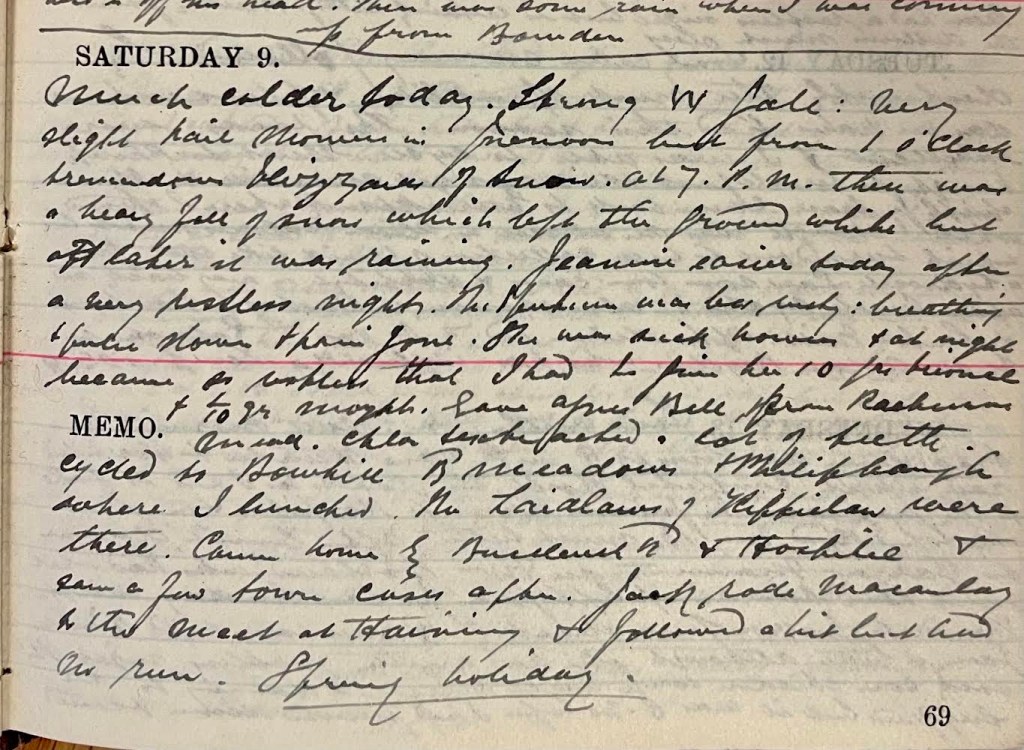 off his head. There was some rain when I was coming
up from Bowden
SATURDAY 9.
Much colder today. Strong W gale: very
slight hail showers in forenoon but from 1 o'clock
tremendous of snow. At 7. P.M. there was
a heavy fall of snow which left the ground white but
later it was raining. Jeannie easier today after
a very restless night. The sputum was less rusty: breathing
& pulse slower & pain gone. She was sick & at night
became so restless that I had to give her 10 grs
& 1/10 gr morph. Gave Bell from
MEMO. Mead. Chlor & extracted a lot of teeth.
cycled to Bowhill & Philiphaugh
where I lunched. The Laidlaws of were
there. Came home & Hospital &
saw a few town cases after. Jack rode Macaulay
to the meet at Haining & followed a bit but had
no run. Spring holiday.
69